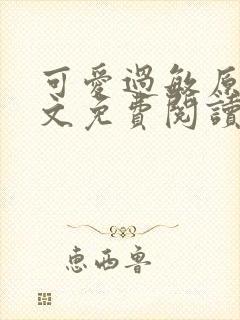 可愛過敏原
文免費閱讀
惠西魯